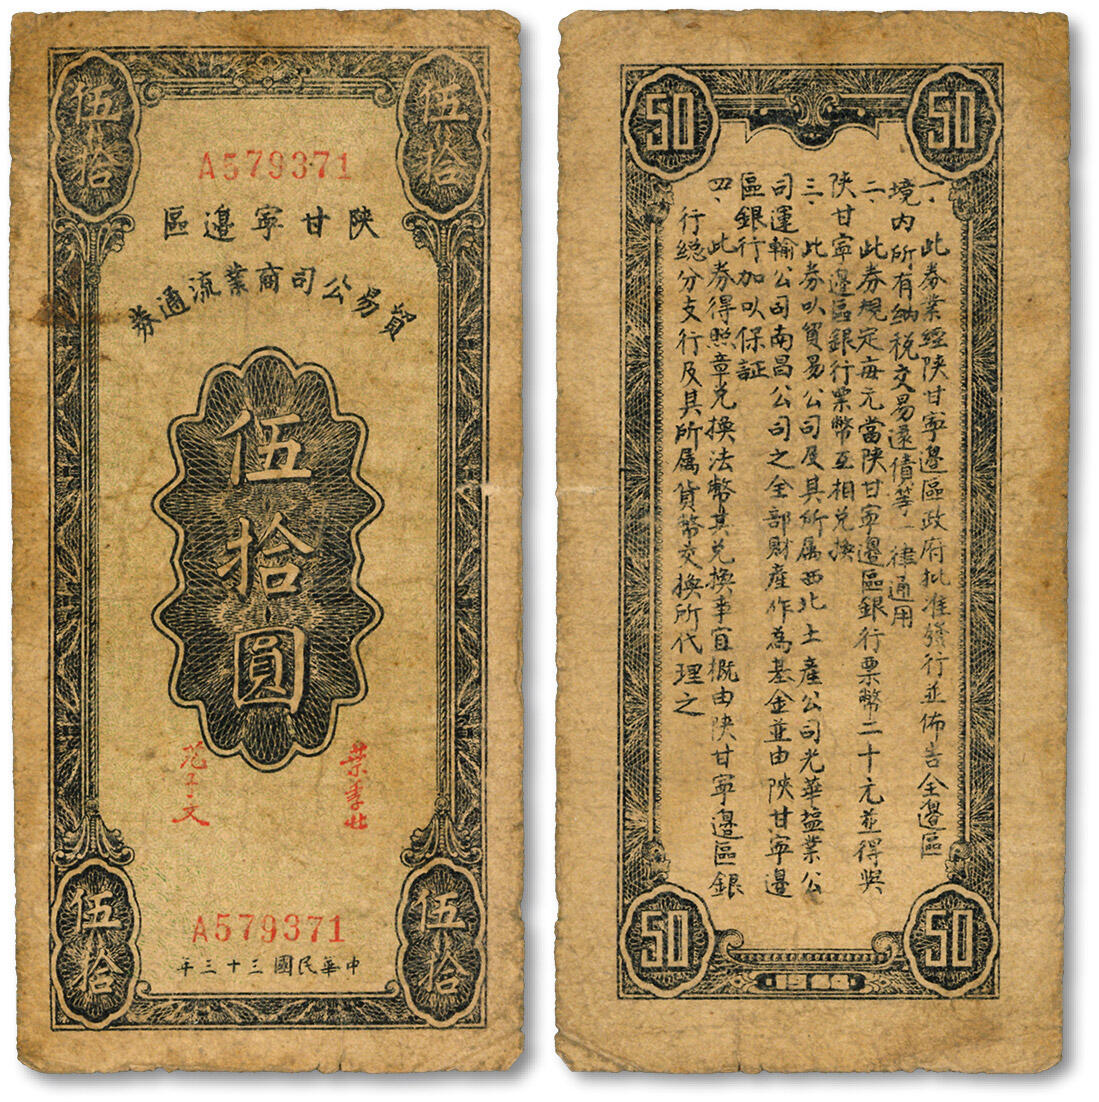 伍拾
伍拾
A579371
陝甘寧邊區
貿易公司商業流通券
伍拾圓
葉季壯
范子文
A579371
中華民國三十三年
伍拾
伍拾
50
50
一、此券業經陝甘寧邊區政府批准發行並佈告全邊區
境内所有納税交易還債等一律通用
二、此券規定每元當陝甘寧邊區銀行票幣二十元並得與
陝甘寧邊區銀行票幣互相兑換
三、此券以貿易公司及其所属西北土產公司光華塩業公
司運輸公司南昌公司之全部財產作為基金並由陝甘寧邊
區銀行加以保証
四、此券得照章兑換法幣其兑換事宜概由陝甘寧邊區銀
行總分支行及其所属貨幣交換所代理之
50
50
1944